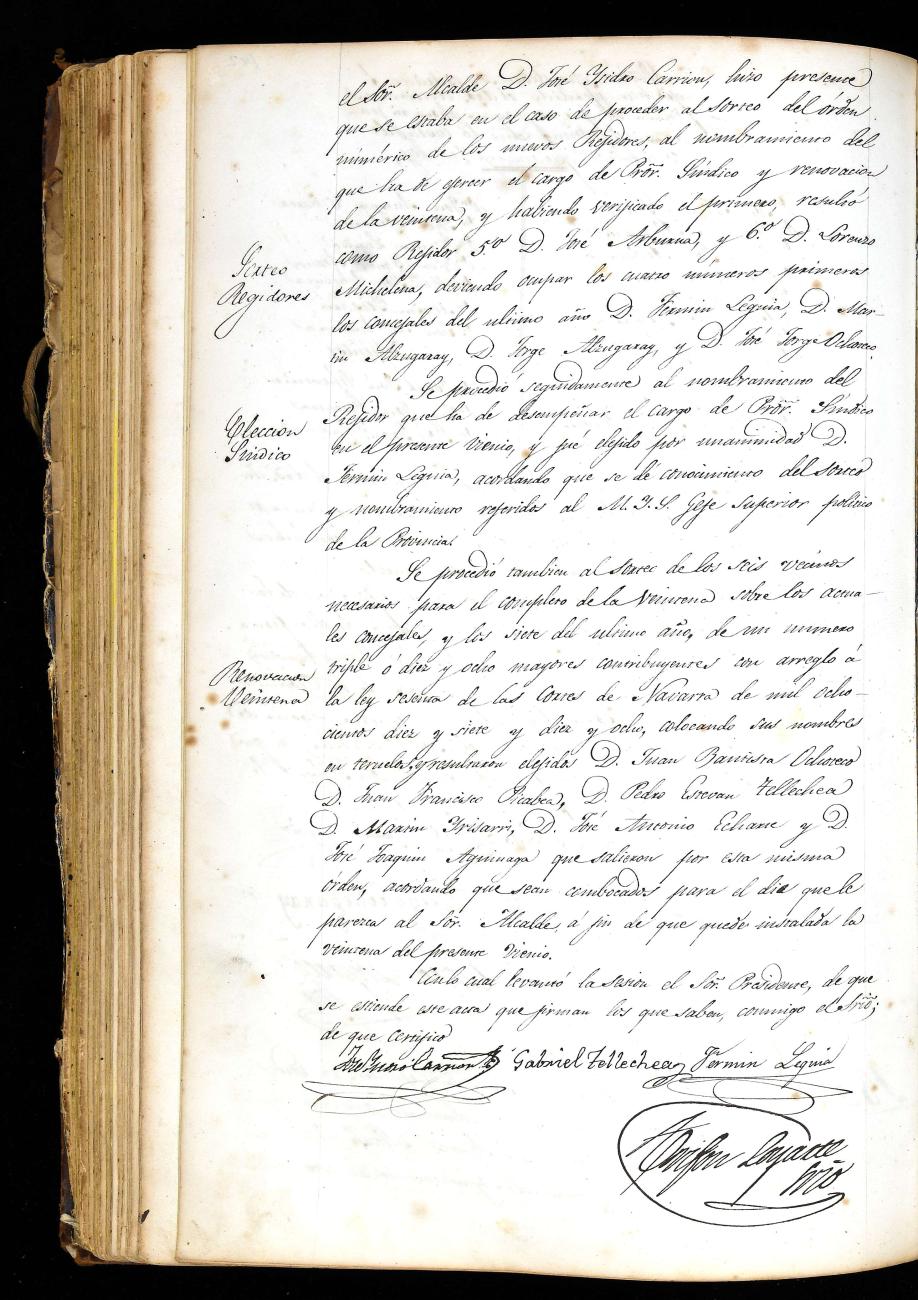 el Sor. Alcalde D. José Ysidro Carrion, hizo presente
que se estaba en el caso de proceder al sorteo del órden
númérico de los nuevos Rejidores, al nombramiento del
que ha de ejercer el cargo de Pror. Síndico y renovacion
de la veintena, y habiendo verificado el primero, resultó
como Rejidor 5.º D. José Arburua, y 6.º D. Lorenzo
Sorteo
Regidores
Michelena, deviendo ocupar los cuatro números primeros
los concejales del ultimo año D. Fermin Leguia, D. Mar-
tin Alzugaray, D. Jorge Alzugaray, y D. José Jorge Ochoteco.
Se procedió seguidamente al nombramiento del
Eleccion
Síndico
Rejidor que ha de desempeñar el cargo de Pror. Síndico
en el presente vienio, y fué elejido por unanimidad D.
Fermin Leguia, acordando que se de conocimiento del sorteo
y nombramiento referidos al M. Y. S. Gefe superior politico
de la Provincia.
Se procedió tambien al sorteo de los seis vecinos
necesarios para el completo de la veintena sobre los actua-
les concejales, y los siete del ultimo año, de un numero
Renovacion
Veintena
triple ó diez y ocho mayores contribuyentes con arreglo á
la ley sesenta de las Cortes de Navarra de mil ocho-
cientos diez y siete y diez y ocho, colocando sus nombres
en teruelos, y resultaron elejidos D. Juan Bautista Ochoteco
D. Juan Francisco Picabea, D. Pedro Estevan Tellechea
D. Martin Yrisarri, D. José Antonio Echarte y D.
José Joaquin Aguinaga que salieron por esta misma
órden, acordando que sean combocados para el dia que le
parezca al Sor. Alcalde, á fin de que quede instalada la
veintena del presente vienio.
Con lo cual levantó la sesion el Sor. Presidente, de que
se estiende este acta que firman los que saben, conmigo el Srio;
de que certifico
José Ysidro Carrion Gabriel Tellechea Fermin Leguia
Srio